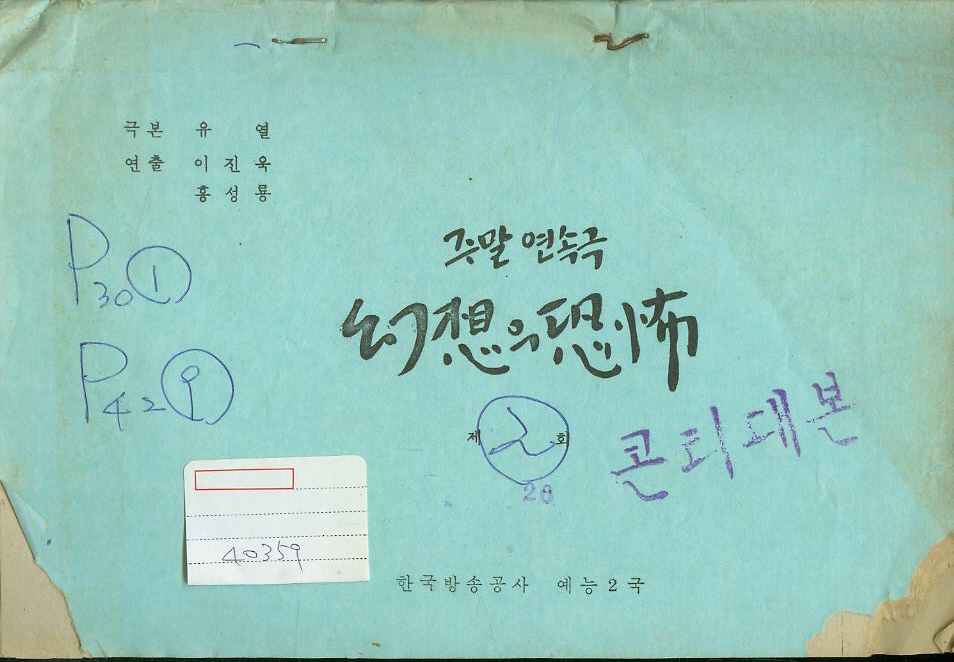 극본 유 열
연출 이진욱
홍성룡
주말 연속극
幻想의 恐怖
P30 ①
P42 ⑨
제 2 회
26
콘티대본
40359
한국방송공사 예능2국